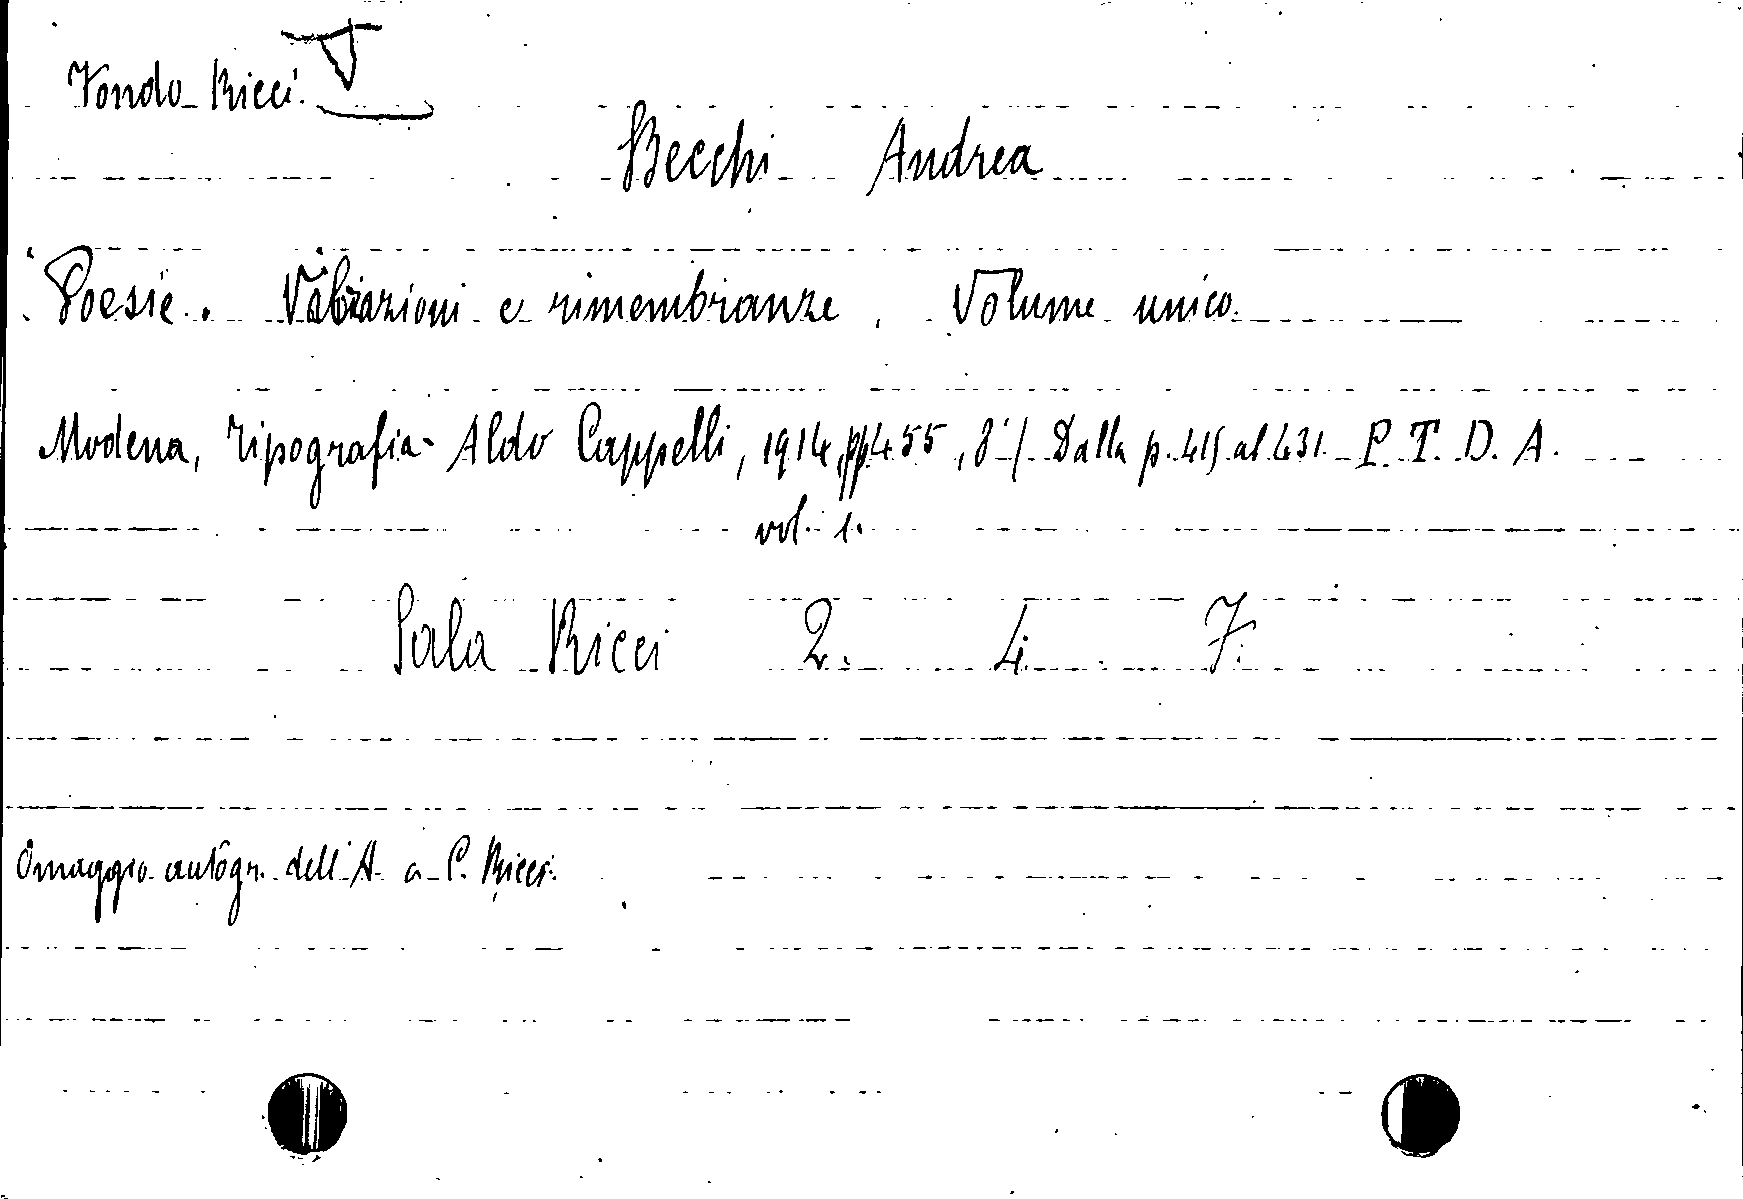 Fondo Ricci.
Becchi Andrea
Poesie. Vibrazioni e rimembranze. Volume unico.
Modena, Tipografia Aldo Cappelli, 1914, pp. 455, 8° / Dalla p. 415 al 431. P. T. D. A.
vol. 1.
Sala Ricci 2. 4. 7.
Omaggio autogr. dell'A. a C. Ricci.